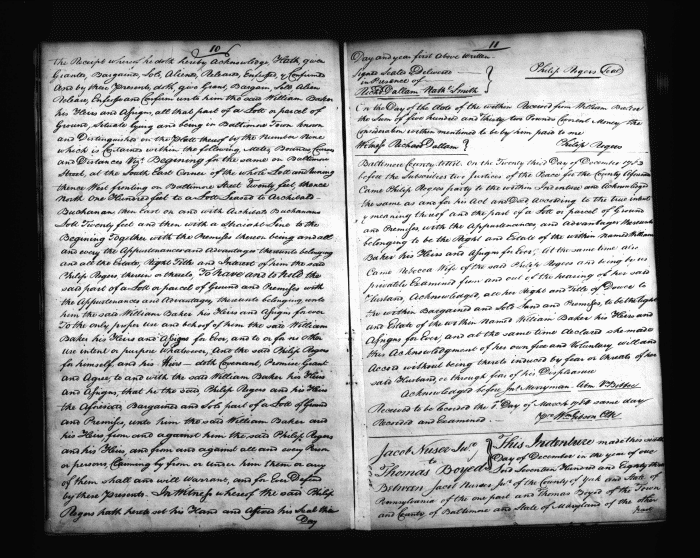 10
The Receipt whereof he doth hereby Acknowledge Hath given
Granted, Bargained, Sold, Aliened, Released, Enfeoffed, & Confirmed
And by these Presents, doth give, Grant, Bargain, Sell, Alien
Release, Enfeoff and Confirm unto him the said William Baker
his Heirs and Assigns, all that part of a Lott or parcel of
Ground, Situate lying and being in Baltimore Town known
and Distinguished on the Platt thereof by the Number Nine
which is Contained within the following, Metes, Bounds Courses
and Distances Viz. Beginning for the same on Baltimore
Street, at the South East Corner of the whole Lott and running
thence West fronting on Baltimore Street Twenty feet thence
North One Hundred feet to a Lott Leased to Archibald
Buchanan then East on and with Archibald Buchanans
Lott Twenty feet and then with a Straight Line to the
Begining Together with the Premises thereon being and all
and every the Appurtenances and Advantages thereunto belonging
and all the Estate, Right Title and Interest of him the said
Philip Rogers therein or thereto, To have and to hold the
said part of a Lott or parcel of Ground and Premises with
the Appurtenances and Advantages thereunto belonging, unto
him the said William Baker his Heirs and Assigns for ever
To the only proper use and behoof of him the said William
Baker his Heirs and Assigns for Ever, and to or for no other
use intent or purpose whatever, And the said Philip Rogers
for himself, and his Heirs doth Covenant, Promise Grant
and Agree, to and with the said William Baker his Heirs
and Assigns, that he the said Philip Rogers and his Heirs
the Aforesaid, Bargained and Sold part of a Lott of Ground
and Premises, unto him the said William Baker and
his Heirs from and against him the said Philip Rogers
and his Heirs and from and against all and every Person
or persons, Claiming by from or under him them or any
of them shall and will Warrant, and for Ever Defend
by these Presents. In Witness whereof the said Philip
Rogers hath hereto set his Hand and Affixed his Seal this
Day
11
Day and year first above Written
Signed Sealed Delivered
in Presence of
Richd Dallam Nathl Smith
Philip Rogers Seal
On the Day of the date of the within Received from William Baker
the Sum of five hundred and thirty two Pounds Current Money the
Consideration within mentioned to be by him paid to me
Witness Richard Dallam
Philip Rogers
Baltimore County to wit. On the Twenty third Day of December 1783
before the Subscribers two Justices of the Peace for the County Aforesaid
Came Philip Rogers party to the within Indenture and acknowledged
the same as and for his Act and Deed According to the true intent
& meaning thereof and the part of a Lott or parcel of Ground
and Premises, with the Appurtenances and Advantages thereunto
belonging to be the Right and Estate of the within Named William
Baker his Heirs and Assigns for Ever, At the same time also
Came Rebecca Wife of the said Philip Rogers and being by us
privately Examined from and out of the hearing of her said
Husband, Acknowledged, all her Right and Title of Dower to
the within Bargained and Sold Land and Premises, to be the Right
and Estate of the within Named William Baker his Heirs and
Assigns for Ever, and at the same time declared she made
this Acknowledgment of her own free and Voluntary will and
Accord without being thereto induced by fear or threats of her
said Husband or through fear of his Displeasure
Acknowledged before
Received to be Recorded the Day of March 1784 same day
Recorded and Examined. Wm Gibson Clk
Jacob Nusee
to
Thomas Boyed
This Indenture made this
Day of December in the year of one
Seventeen Hundred and Eighty three
Between Jacob Nusee of the County of York and State of
Pennsylvania of the one part and Thomas Boyed of the Town
and County of Baltimore and State of Maryland of the other
part